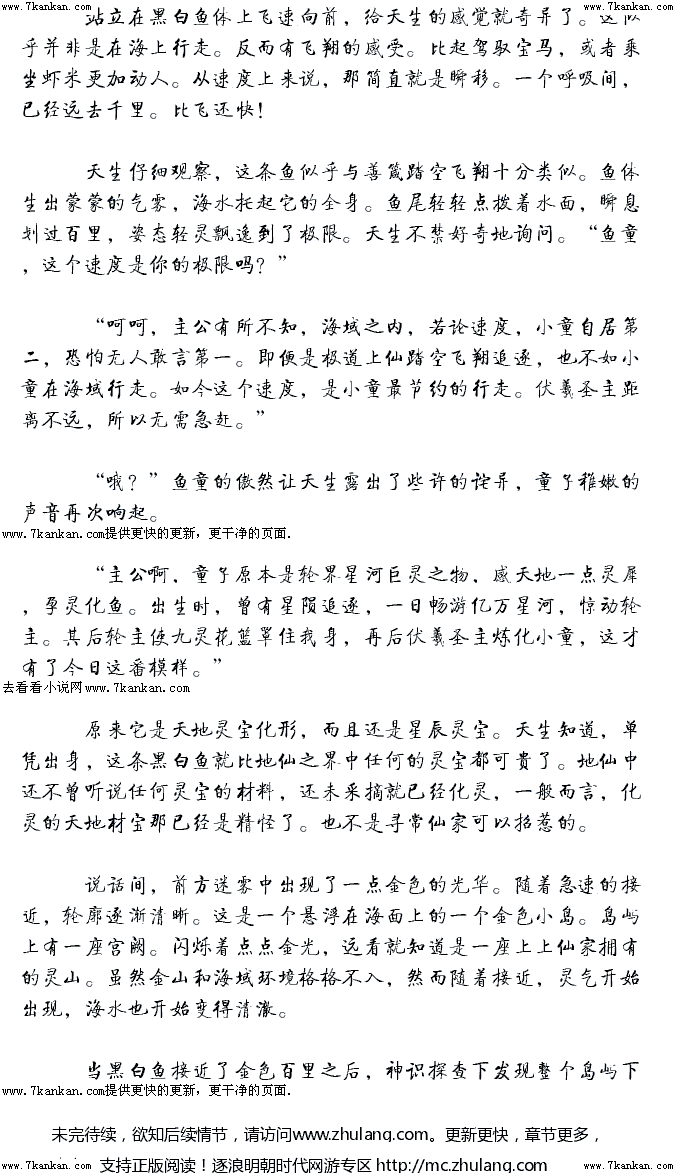 www.7kankan.com
www.7kankan.com
站立在黑白鱼体上飞速向前，给天生的感觉就奇异了。这似
乎并非是在海上行走。反而有飞翔的感受。比起驾驭宝马，或者乘
坐虾米更加动人。从速度上来说，那简直就是瞬移。一个呼吸间，
已经远去千里。比飞还快！
天生仔细观察，这条鱼似乎与善箴踏空飞翔十分类似。鱼体
生出蒙蒙的气雾，海水托起它的全身。鱼尾轻轻点拨着水面，瞬息
划过百里，姿态轻灵飘逸到了极限。天生不禁好奇地询问。“鱼童
，这个速度是你的极限吗？”
“呵呵，主公有所不知，海域之内，若论速度，小童自居第
二，恐怕无人敢言第一。即便是极道上仙踏空飞翔追逐，也不如小
童在海域行走。如今这个速度，是小童最节约的行走。伏羲圣主距
离不远，所以无需急赶。”
“哦？”鱼童的傲然让天生露出了些许的诧异，童子稚嫩的
声音再次响起。
www.7kankan.com提供更快的更新，更干净的页面.
“主公啊，童子原本是轮界星河巨灵之物，感天地一点灵犀
，孕灵化鱼。出生时，曾有星陨追逐，一日畅游亿万星河，惊动轮
主。其后轮主使九灵花篮罩住我身，再后伏羲圣主炼化小童，这才
有了今日这番模样。”
去看看小说网www.7kankan.com
原来它是天地灵宝化形，而且还是星辰灵宝。天生知道，单
凭出身，这条黑白鱼就比地仙之界中任何的灵宝都可贵了。地仙中
还不曾听说任何灵宝的材料，还未采摘就已经化灵，一般而言，化
灵的天地材宝那已经是精怪了。也不是寻常仙家可以招惹的。
说话间，前方迷雾中出现了一点金色的光华。随着急速的接
近，轮廓逐渐清晰。这是一个悬浮在海面上的一个金色小岛。岛屿
上有一座宫阙。闪烁着点点金光，远看就知道是一座上上仙家拥有
的灵山。虽然金山和海域环境格格不入，然而随着接近，灵气开始
出现，海水也开始变得清澈。
当黑白鱼接近了金色百里之后，神识探查下发现整个岛屿下
www.7kankan.com提供更快的更新，更干净的页面.
未完待续，欲知后续情节，请访问www.zhulang.com。更新更快，章节更多，
支持正版阅读！逐浪明朝时代网游专区 http://mc.zhulang.com
www.7kankan.com
www.7kankan.com